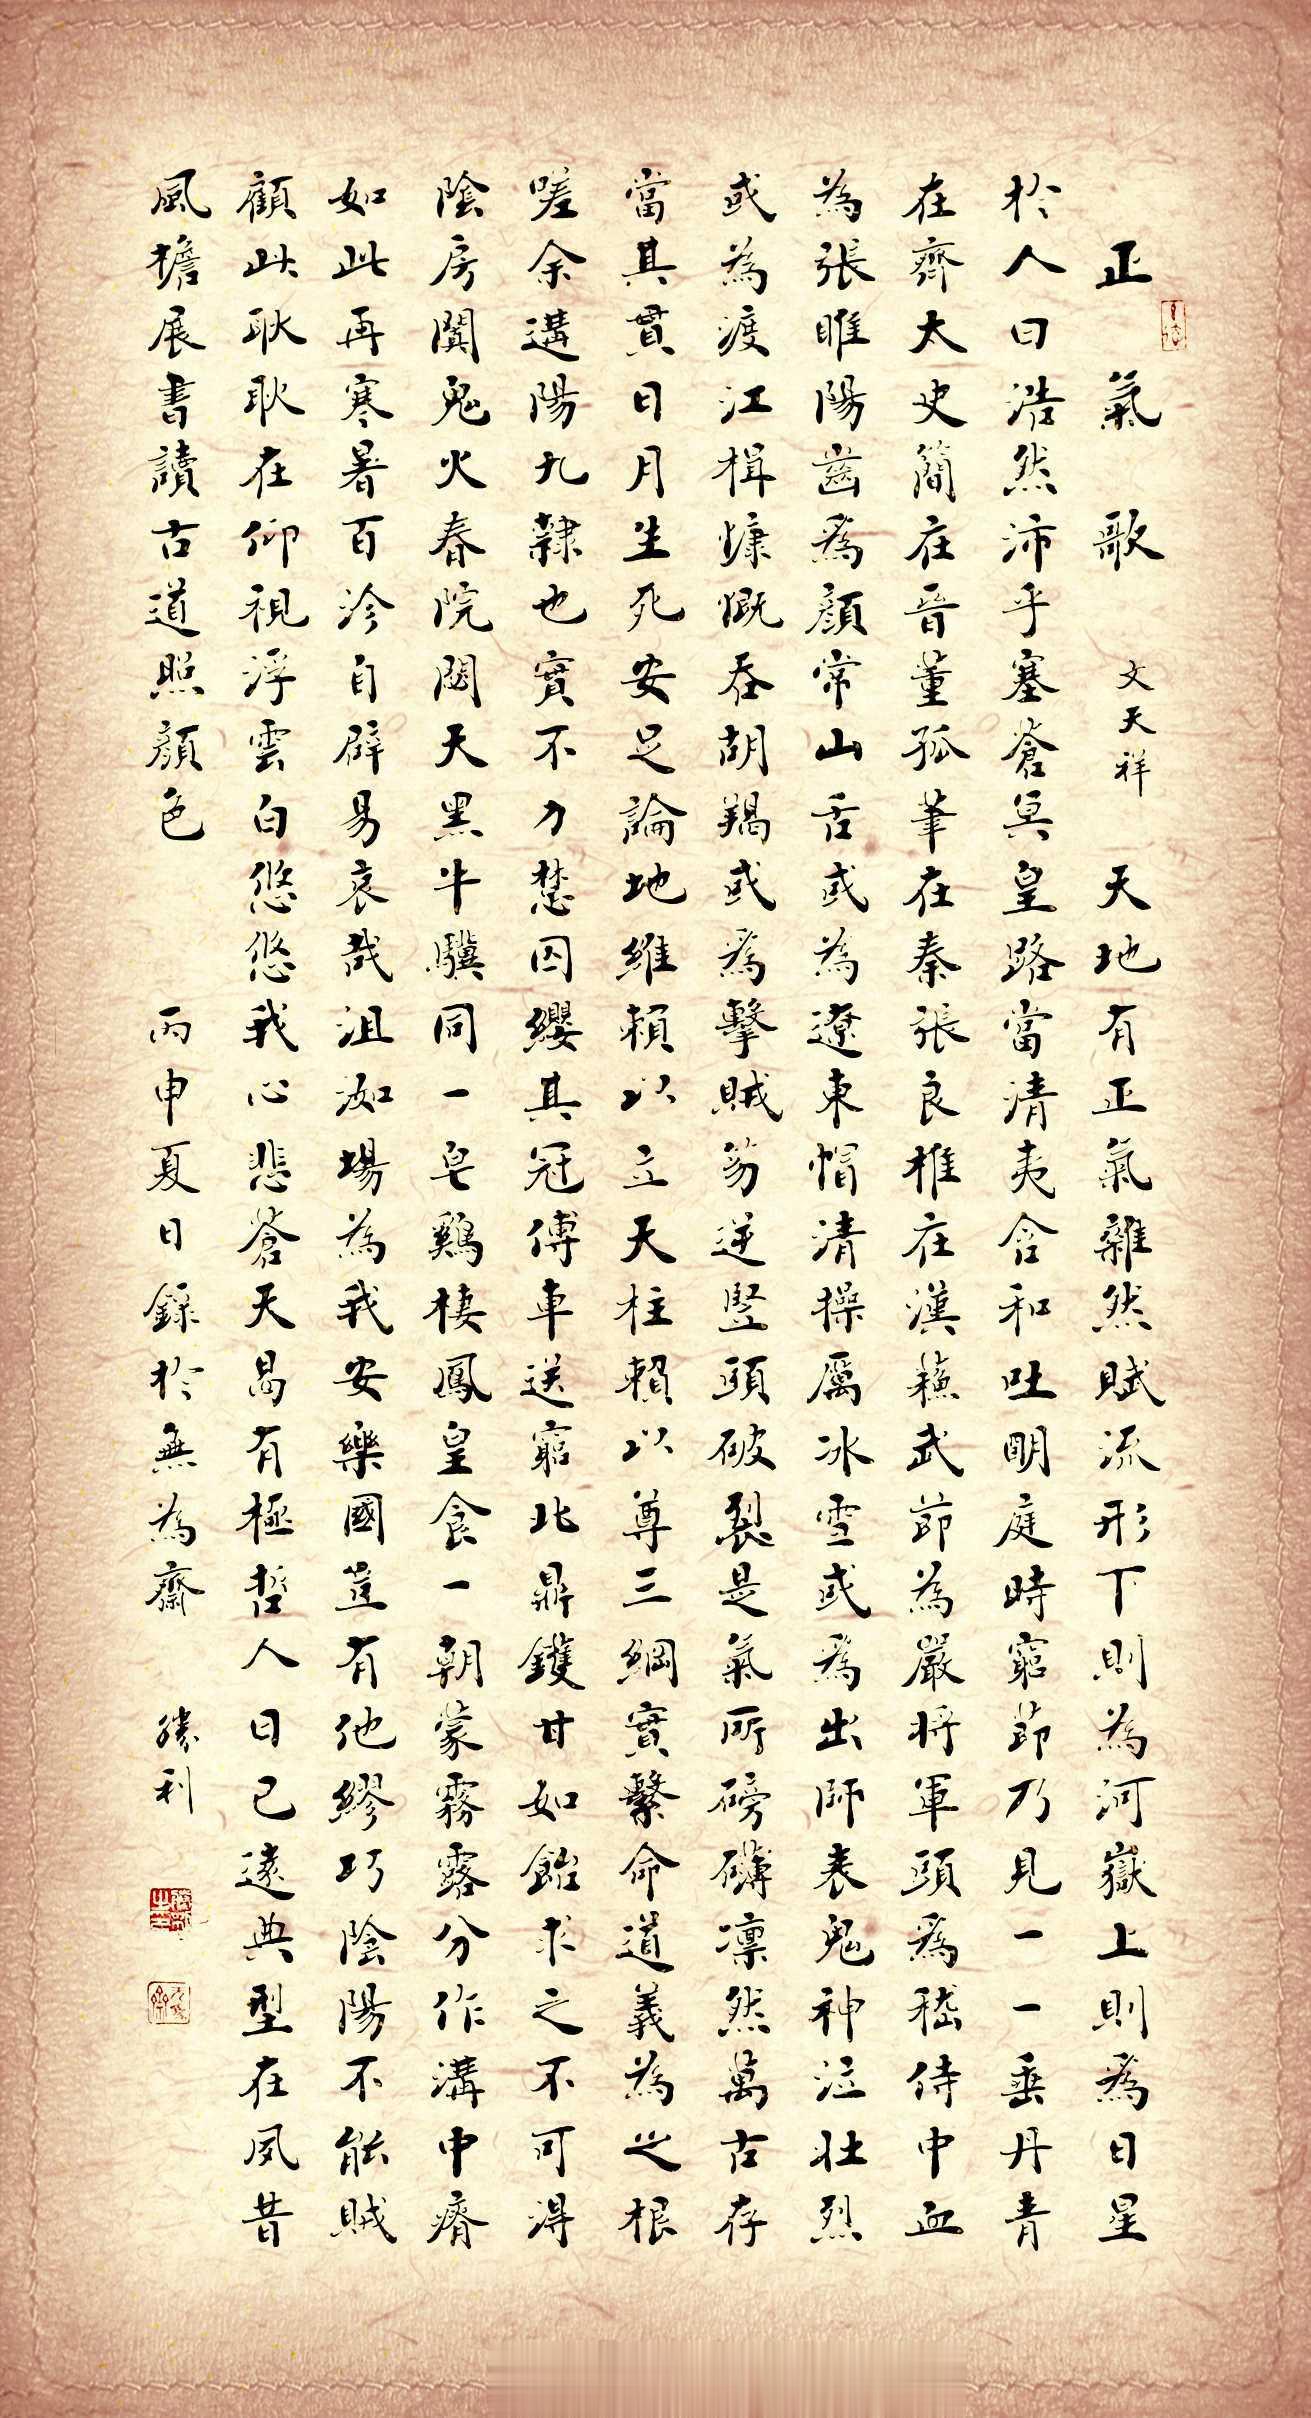 正氣歌 文天祥 天地有正氣雜然賦流形下則為河嶽上則為日星
於人曰浩然沛乎塞蒼冥皇路當清夷含和吐明庭時窮節乃見一一垂丹青
在齊太史簡在晉董孤筆在秦張良椎在漢蘇武節為嚴將軍頭為嵇侍中血
為張睢陽齒為顏常山舌或為遼東帽清操厲冰雪或為出師表鬼神泣壯烈
或為渡江楫慷慨吞胡羯或為擊賊笏逆豎頭破裂是氣所磅礴凜然萬古存
當其貫日月生死安足論地維賴以立天柱賴以尊三綱實繫命道義為之根
嗟余遘陽九隸也實不力楚囚纓其冠傳車送窮北鼎鑊甘如飴求之不可得
陰房闃鬼火春院閟天黑牛驥同一皂鷄棲鳳皇食一朝蒙霧露分作溝中瘠
如此再寒暑百沴自辟易哀哉沮洳場為我安樂國豈有他繆巧陰陽不能賊
顧此耿耿在仰視浮雲白悠悠我心悲蒼天曷有極哲人日已遠典型在夙昔
風檐展書讀古道照顏色 丙申夏日錄於無為齋 勝利